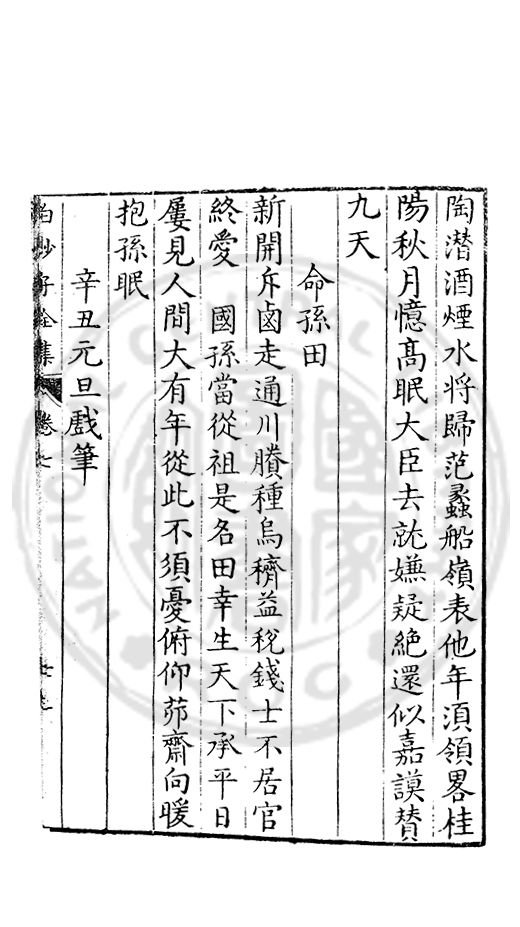 陶潛酒煙水將歸范蠡船嶺表他年湏領畧桂
陽秋月憶髙眠大臣去就嫌疑絶還似嘉謨賛
九天
命孫田
新開斥鹵走通川賸種烏穧益稅錢士不居官
終愛　國孫當從祖是名田幸生天下承平日
屢見人間大有年從此不須憂俯仰茆齋向暖
抱孫眠
辛丑元旦戲筆
白沙子全集　卷七